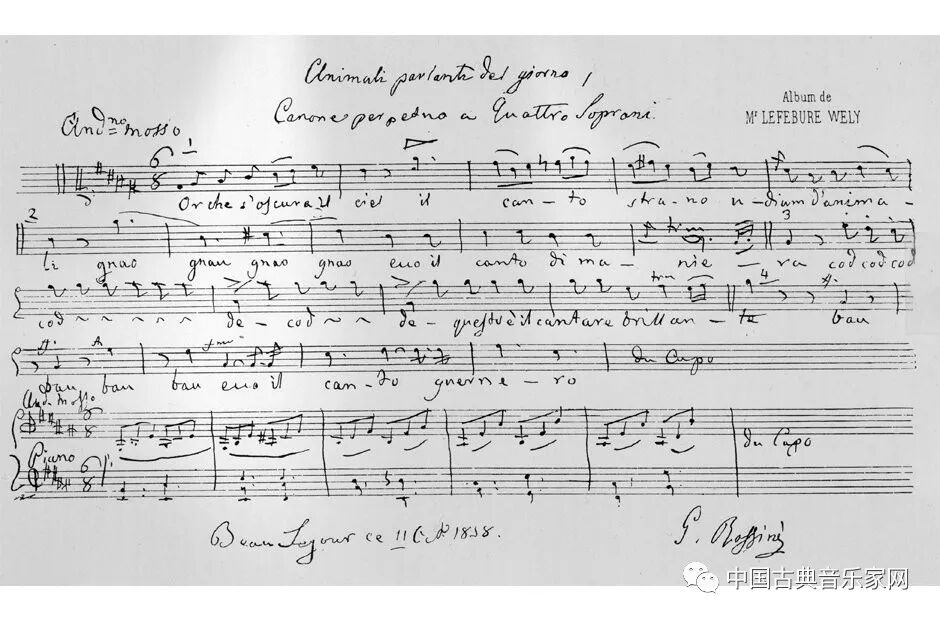 Animali parlanti del giorno,
Canone perpetuo a Quattro Soprani.
Album de
Mr LEFEBURE WELY
Andno mosso
Or che s'oscura il ciel il can-to stra-no u-diam d'anima-
2 3
li gnao gnau gnao gnao ecco il canto di ma-nie-ra cod cod cod
4
cod ~ ~ ~ ~ de-cod ~ ~ de- questo è il cantare brillan-te bau
bau bau bau ecco il can-to guerrie-ro
Da Capo
And. mosso
Piano
Da Capo
Beau Séjour ce 11 1858.
G. Rossini
中国古典音乐家网